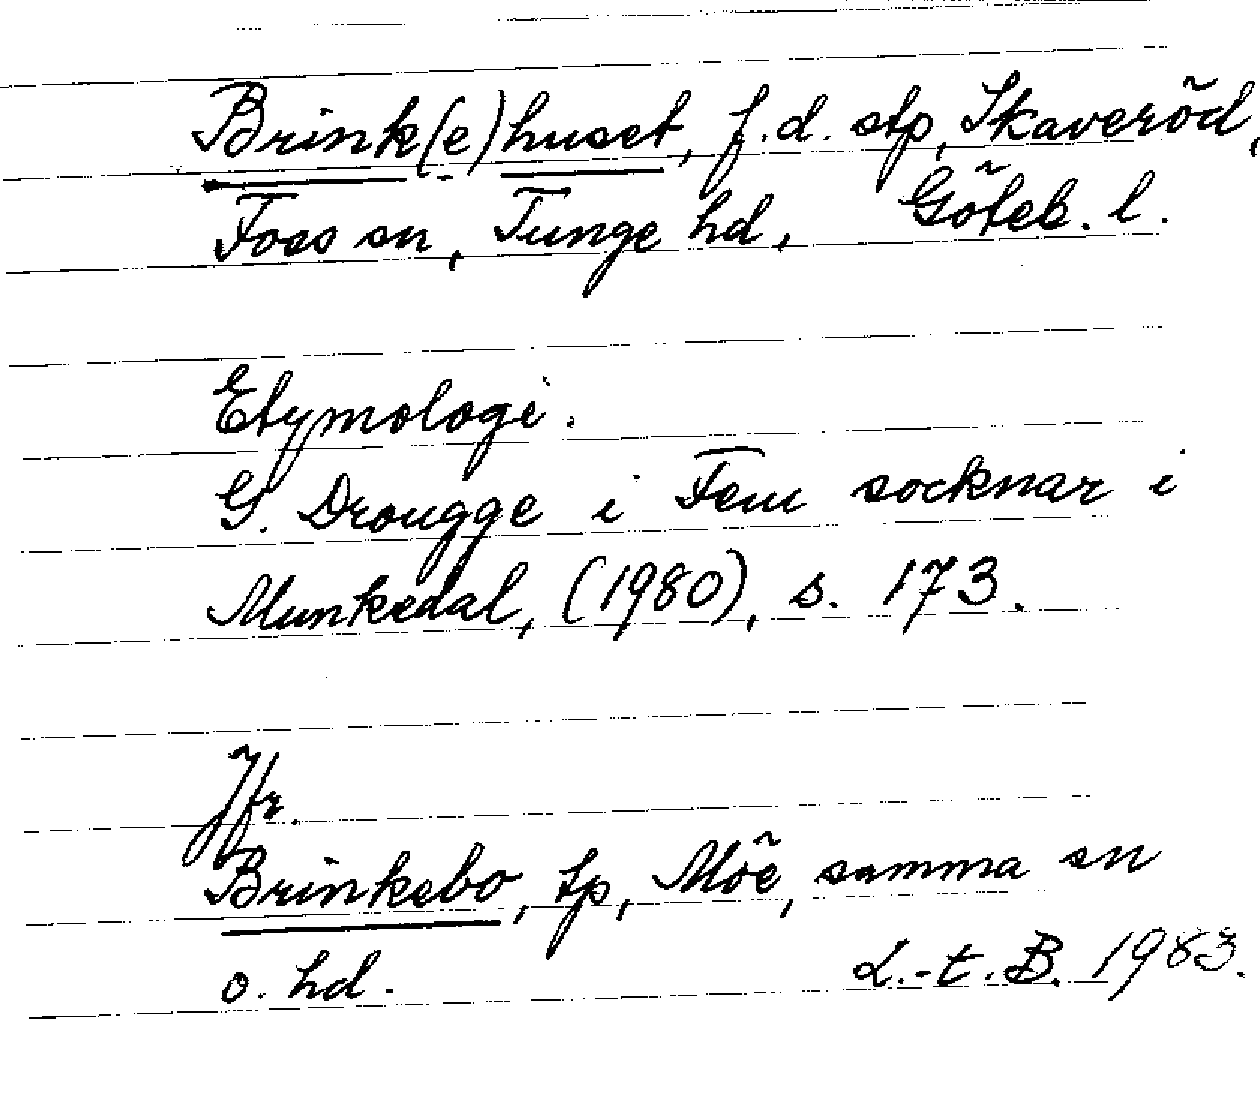 Brink(e)huset, f.d. stp, Skaveröd,
Foss sn, Tunge hd, Göteb. l.
Etymologi:
G. Drougge i Fem socknar i
Munkedal, (1980), s. 173.
Jfr.
Brinkebo, tp, Möe, samma sn
o. hd. L.-t. B. 1983.